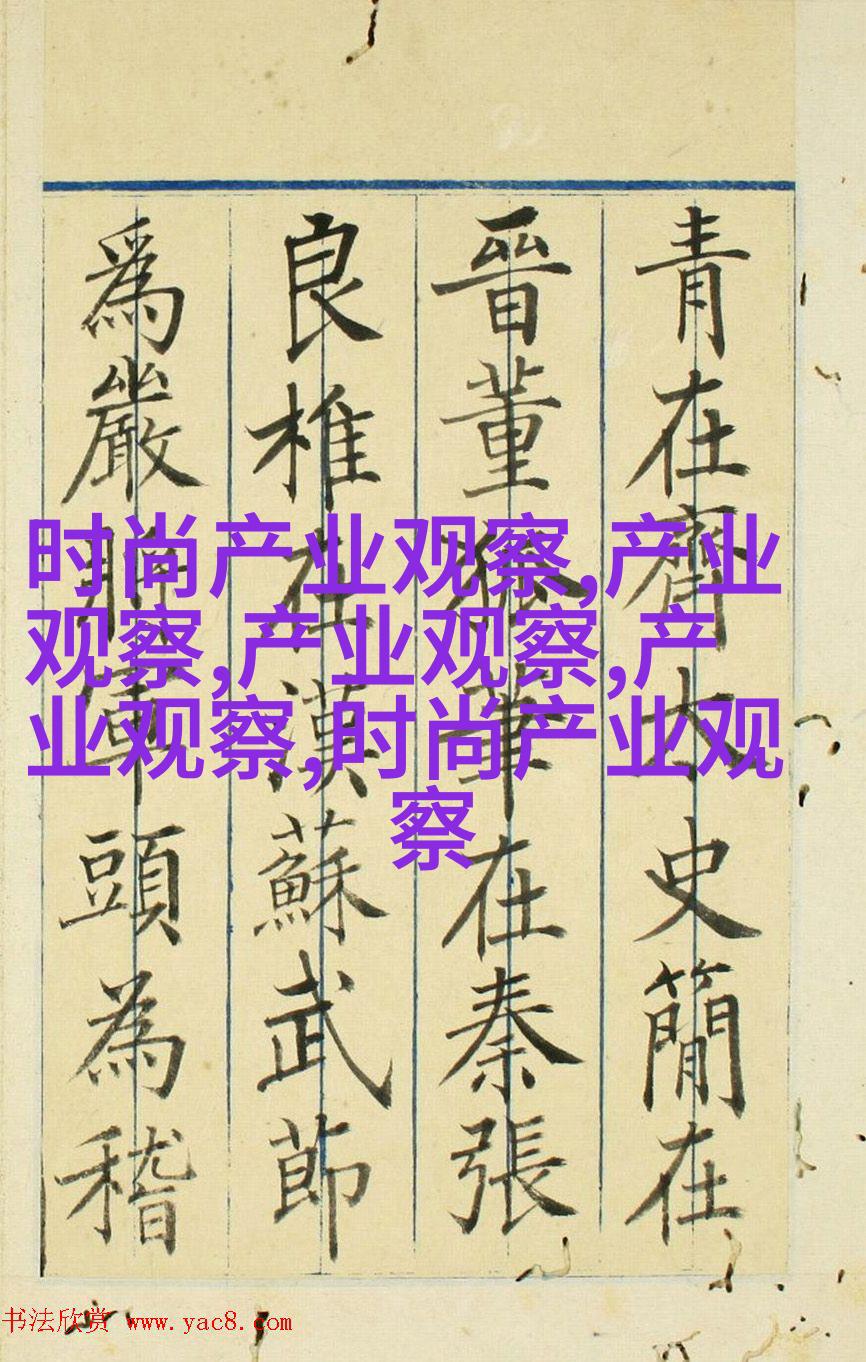 青在齊太史簡在
晉董狐筆在秦張
良椎在漢蘇武節
爲嚴將軍頭為稽
时尚产业观察,产业
观察,产业观察,产
业观察,时尚产业观
察
书法欣赏 www.yac8.com